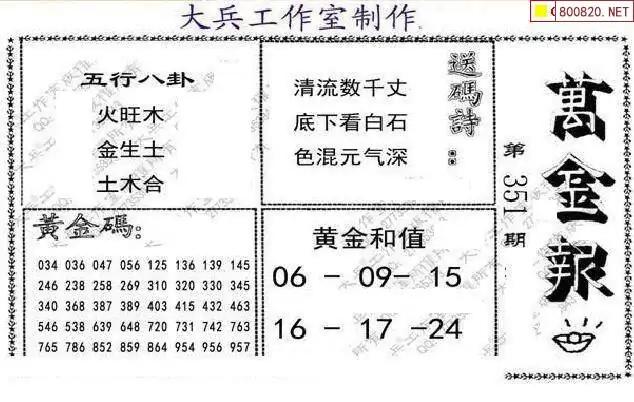 大兵工作室制作
800820.NET
五行八卦
火旺木
金生土
土木合
送碼詩:
清流数千丈
底下看白石
色混元气深
萬金報
第351期
黃金碼:
034 036 047 056 125 136 139 145
246 238 258 269 310 320 330 345
340 368 387 389 403 415 432 463
546 538 639 648 720 731 742 763
765 786 852 859 864 954 956 957
黄金和值
06 - 09- 15
16 - 17 -24